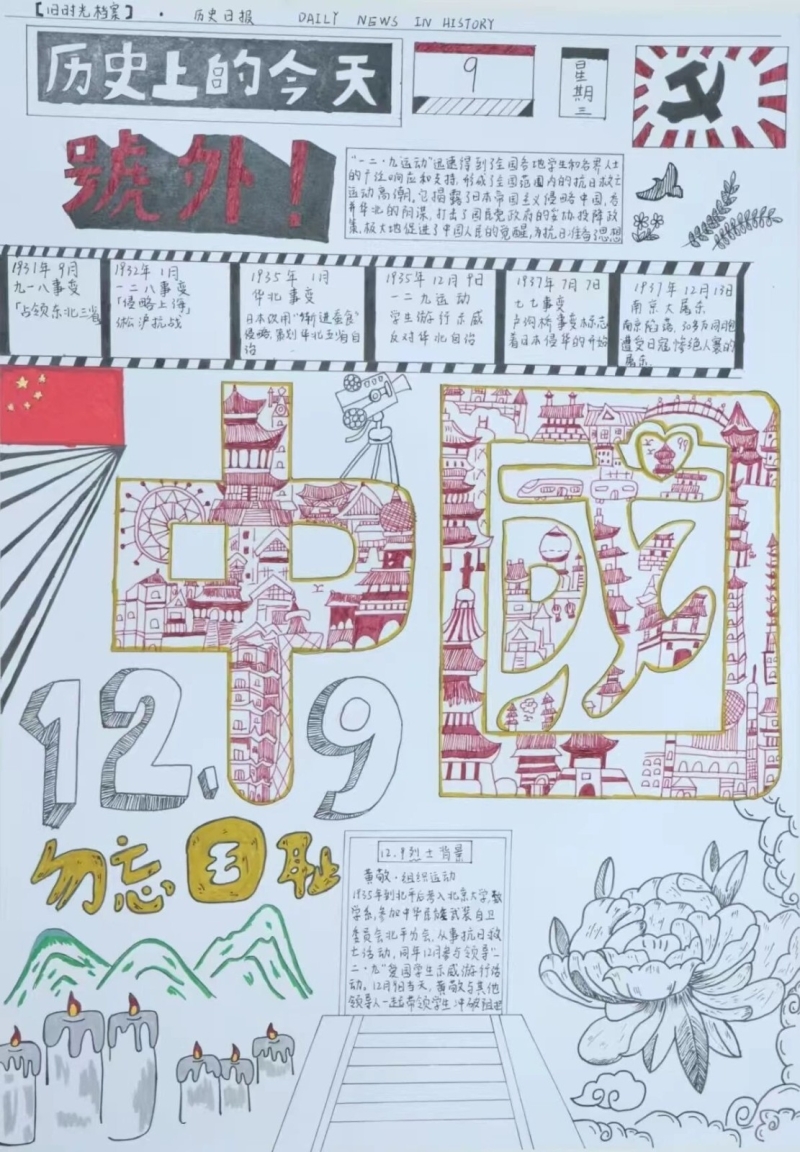 【旧时光档案】 · 历史日报 DAILY NEWS IN HISTORY
历史上的今天
9
星期三
號外!
"一二·九运动"迅速得到了全国各地学生和各界人士
的广泛响应和支持,形成了全国范围内的抗日救亡
运动高潮。它揭露了日本帝国主义侵略中国,吞
并华北的阴谋,打击了国民党政府的妥协投降政
策,极大地促进了中国人民的觉醒,为抗日准备了思想
1931年9月
九一八事变
「占领东北三省
1932年1月
一二八事变
「侵略上海」
淞沪抗战
1935年1月
华北事变
日本改用"蚕食"
侵略,策划华北五省自
治
1935年12月9日
一二九运动
学生游行示威
反对华北自治
1937年7月7日
七七事变
卢沟桥事变标志
着日本侵华的开始
1937年12月13日
南京大屠杀
南京陷落,30多万同胞
遭受日寇惨绝人寰的
屠杀
中國
12.9
勿忘国耻
12.9烈士背景
黄敬·组织运动
1935年到北平后考入北京大学数
学系,参加中华民族武装自卫
委员会北平分会,从事抗日救
亡活动,同年12月参与领导"一
二·九"爱国学生示威游行活
动。12月9日当天,黄敬与其他
领导人一起带领学生冲破阻拦